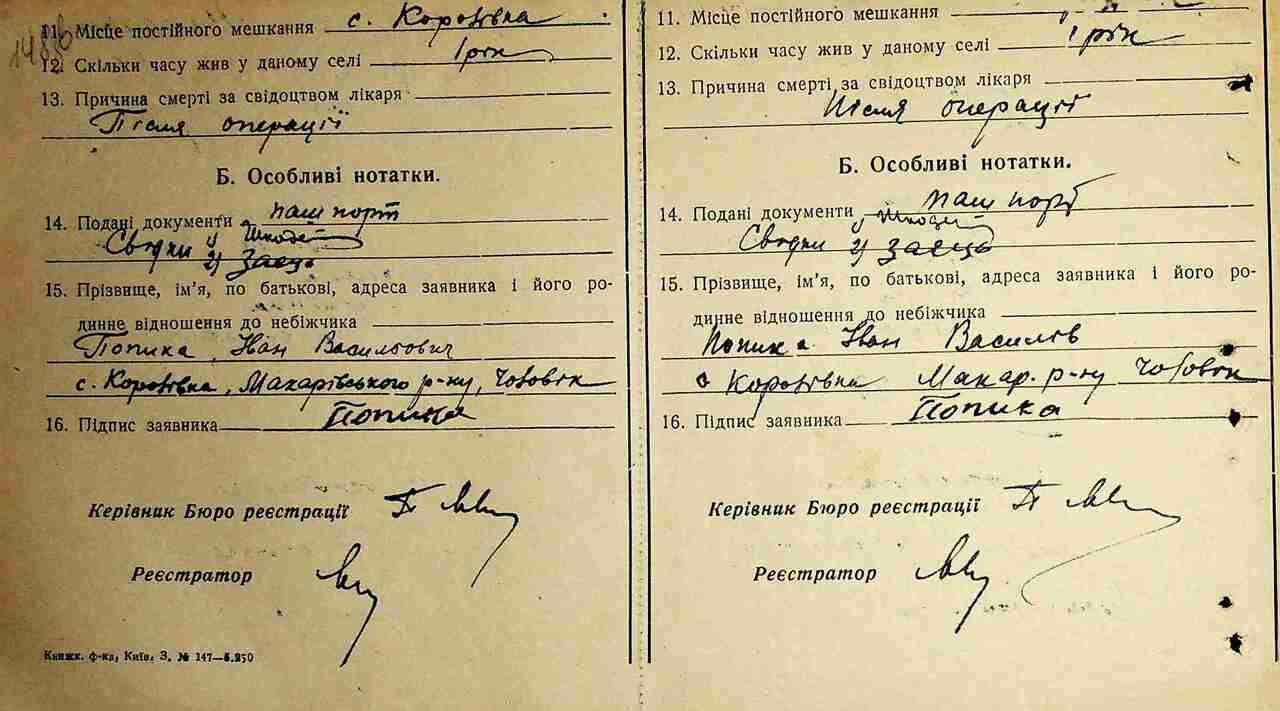 11. Місце постійного мешкання с. Коровівка
12. Скільки часу жив у даному селі 1 рік
13. Причина смерті за свідоцтвом лікаря
Після операції
Б. Особливі нотатки.
14. Подані документи паш порт
Сводки 1)
2) Заєць
15. Прізвище, ім’я, по батькові, адреса заявника і його ро-
динне відношення до небіжчика
Попика, Іван Васильович
с. Коровівка, Макарівського р-ну, Чоловік
16. Підпис заявника Попика
Керівник Бюро реєстрації
Реєстратор
Книжк. ф-ка, Київ. З. № 147—5.250
11. Місце постійного мешкання
12. Скільки часу жив у даному селі 1 рік
13. Причина смерті за свідоцтвом лікаря
Після операції
Б. Особливі нотатки.
14. Подані документи паш порт
Сводки 2) Заєць
15. Прізвище, ім’я, по батькові, адреса заявника і його ро-
динне відношення до небіжчика
Попика Іван Васильов
с Коровівка Макар. р-ну Чоловік
16. Підпис заявника Попика
Керівник Бюро реєстрації
Реєстратор